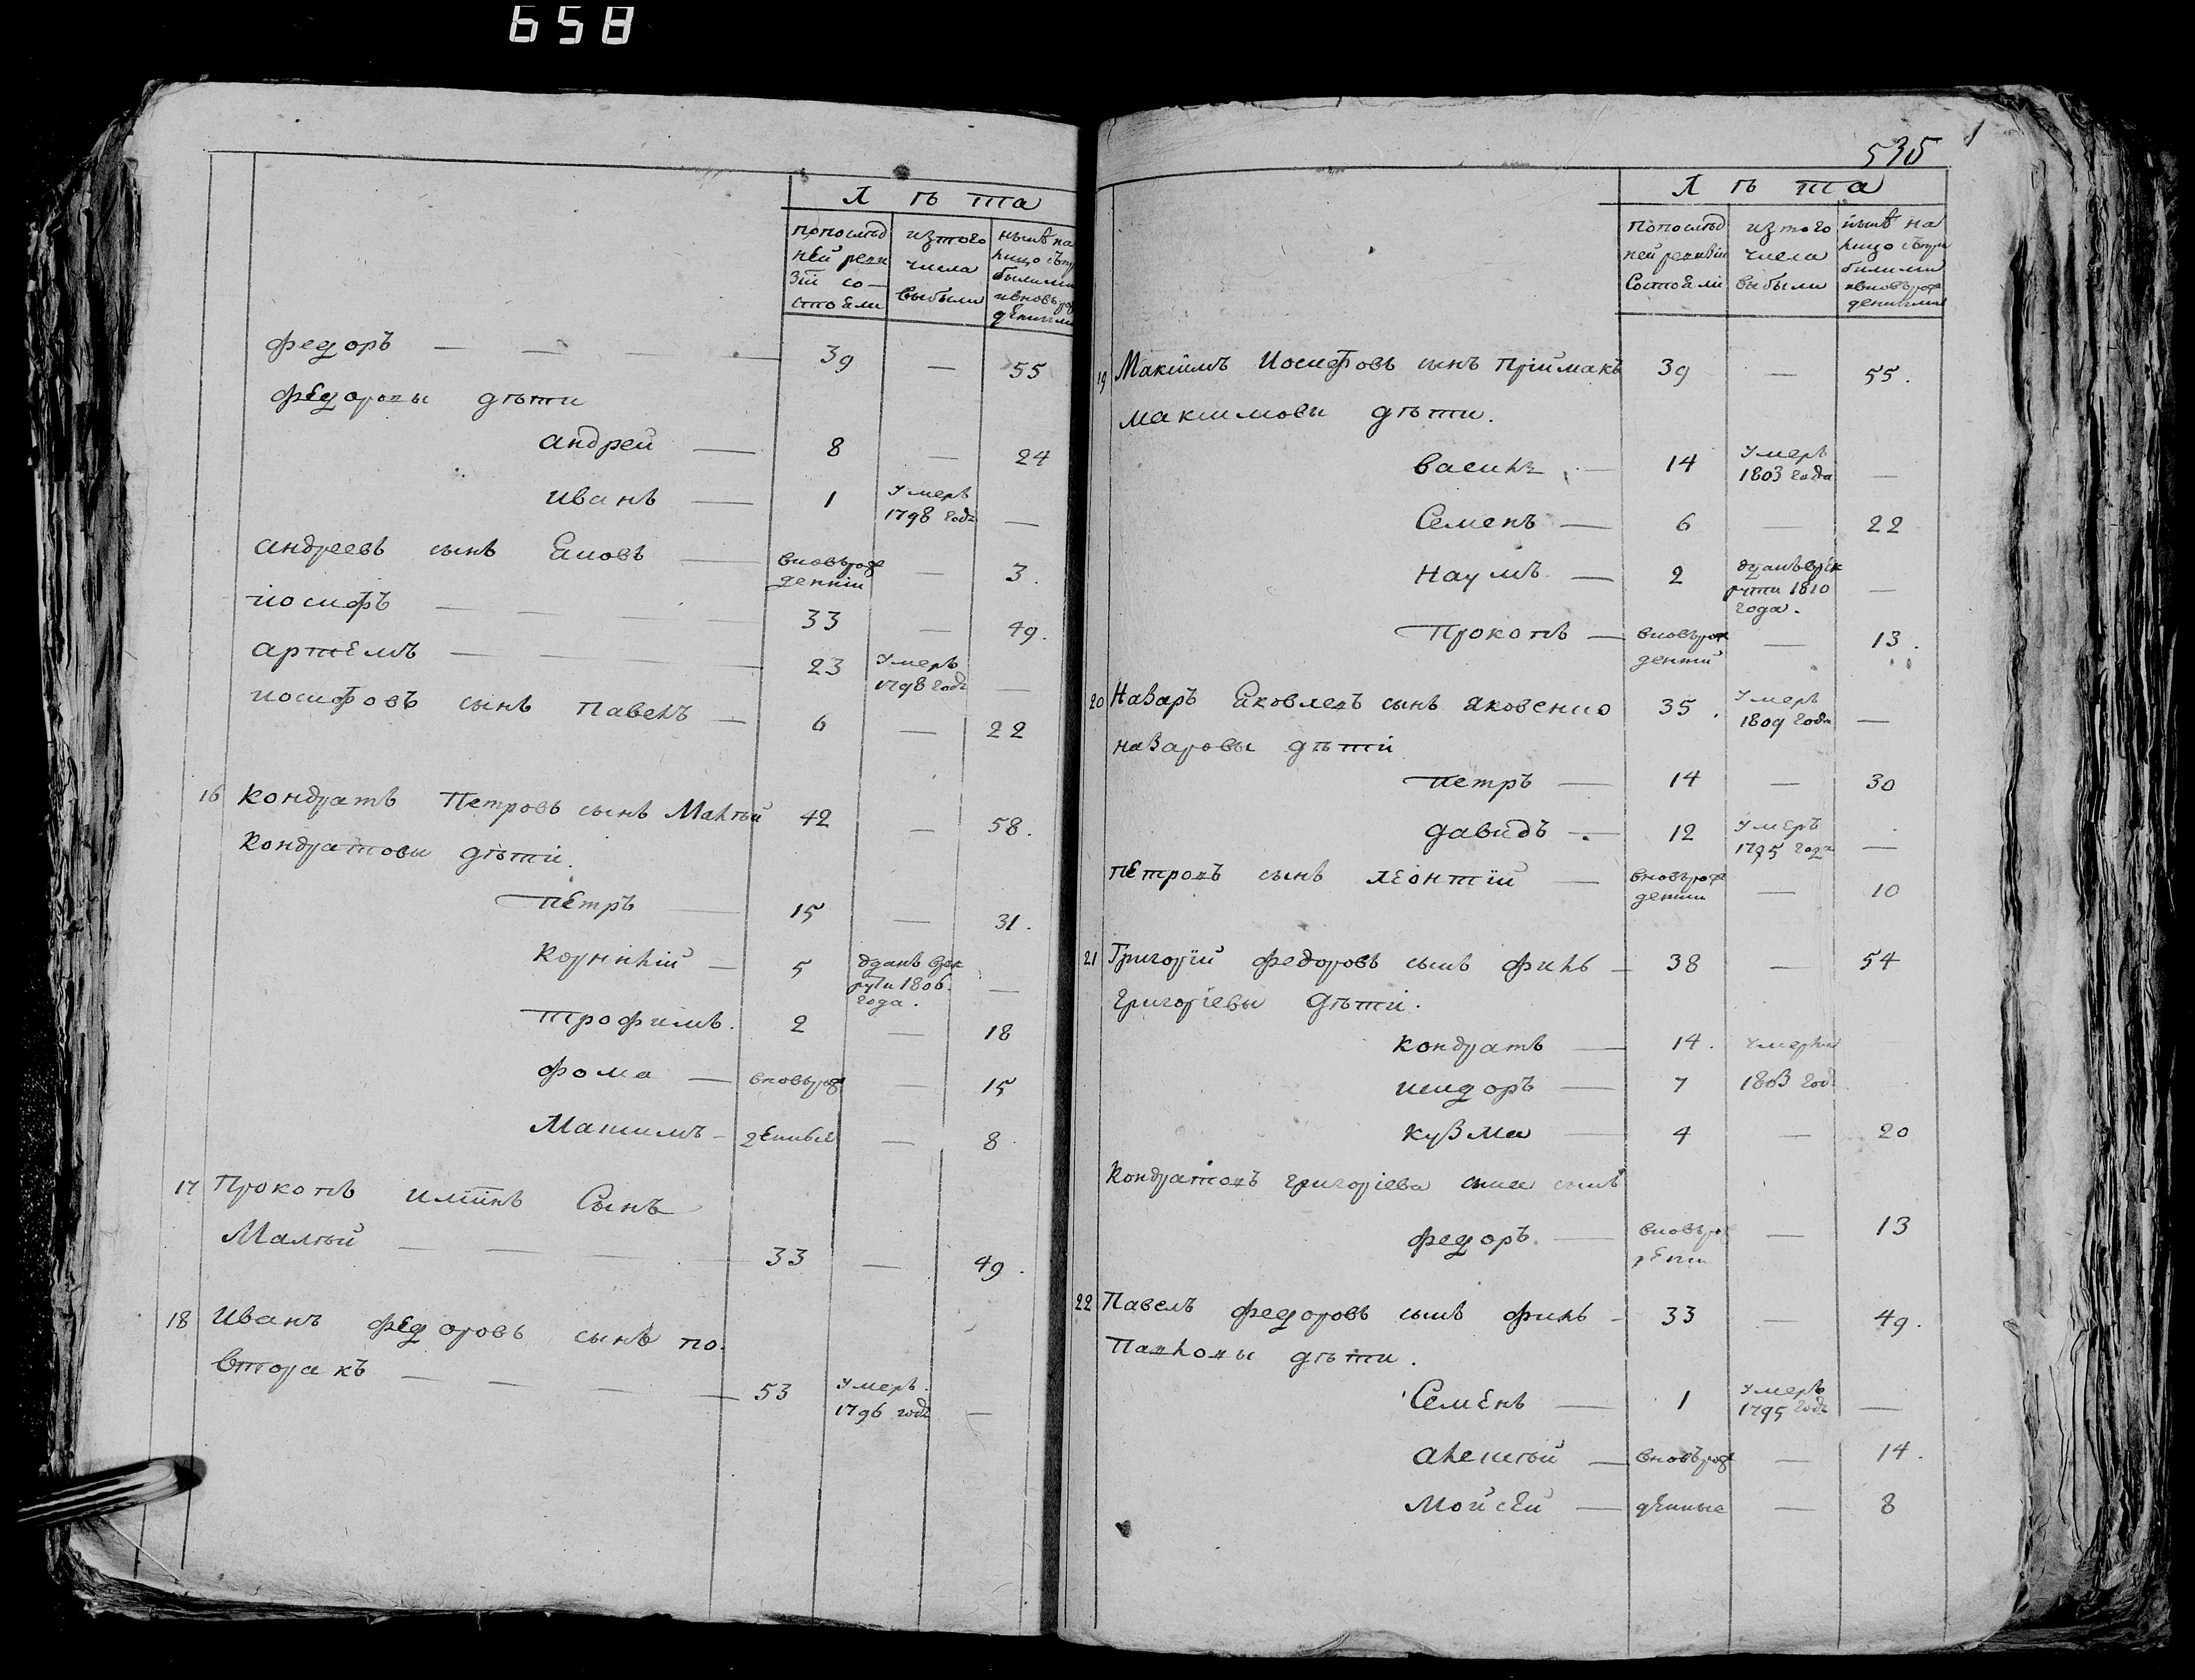 658
Лѣта
попослѣд
ней реви
зіи со-
стоѣли
изтого
числа
выбыли
нынѣ на
лицо съпри
былыми
ивновърож
денными
федоръ — — — — 39 — 55
федоровы дѣти
андрей — 8 — 24
иванъ — 1 умеръ 1798 года —
андреевъ сынъ — вновьрожденній — 3.
иосифъ — — — — 33 — 49.
артемъ — — — — 23 умеръ 1798 года —
иосифовъ сынъ павелъ — 6 — 22
16 кондратъ Петровъ сынъ Малѣй 42 — 58.
кондратовы дѣти.
петръ — 15 — 31.
корнилій — 5 вдрек рути 1806. года. —
трофимъ. 2 — 18
фома — вновьрож — 15
Максимъ - денные — 8
17 Прокопъ Сынъ
Малѣй — — — — 33 — 49.
18 Иванъ федоровъ сынъ по
вторакъ — — — — 53 умеръ. 1796 года —
535
Лѣта
попослѣд
ней ревизіи
Состоѣли
изтого
числа
выбыли
нынѣ на
лицо съпри
былыми
ивновьрож
денными
19 Максимъ Иосифовъ сынъ Пріймакъ 39 — 55.
максимовы дѣти.
василь — 14 умеръ 1803 года —
Семенъ — 6 — 22
Наумъ — 2 рути 1810 года. —
Прокопъ — вновьрож денній — 13.
20 Назаръ Яковлевъ сынъ яковенко 35. умеръ 1809 года —
назаровы дѣти
петръ — 14 — 30
давидъ — 12 умеръ 1795 года —
петровъ сынъ леонтій — вновьрож денни — 10
21 Григорій федоровъ сынъ филь — 38 — 54
григоріевы дѣти.
кондратъ — 14. умерли
исидоръ — 7 1803 год
кузма — 4 — 20
кондратовъ григоріева сына сынъ
федоръ. — вновьрож денни — 13
22 Павелъ федоровъ сынъ филь - 33 — 49.
Павловы дѣти.
Семенъ — 1 умеръ 1795 года —
алексѣй — вновьрож — 14.
Мойсей — денные — 8